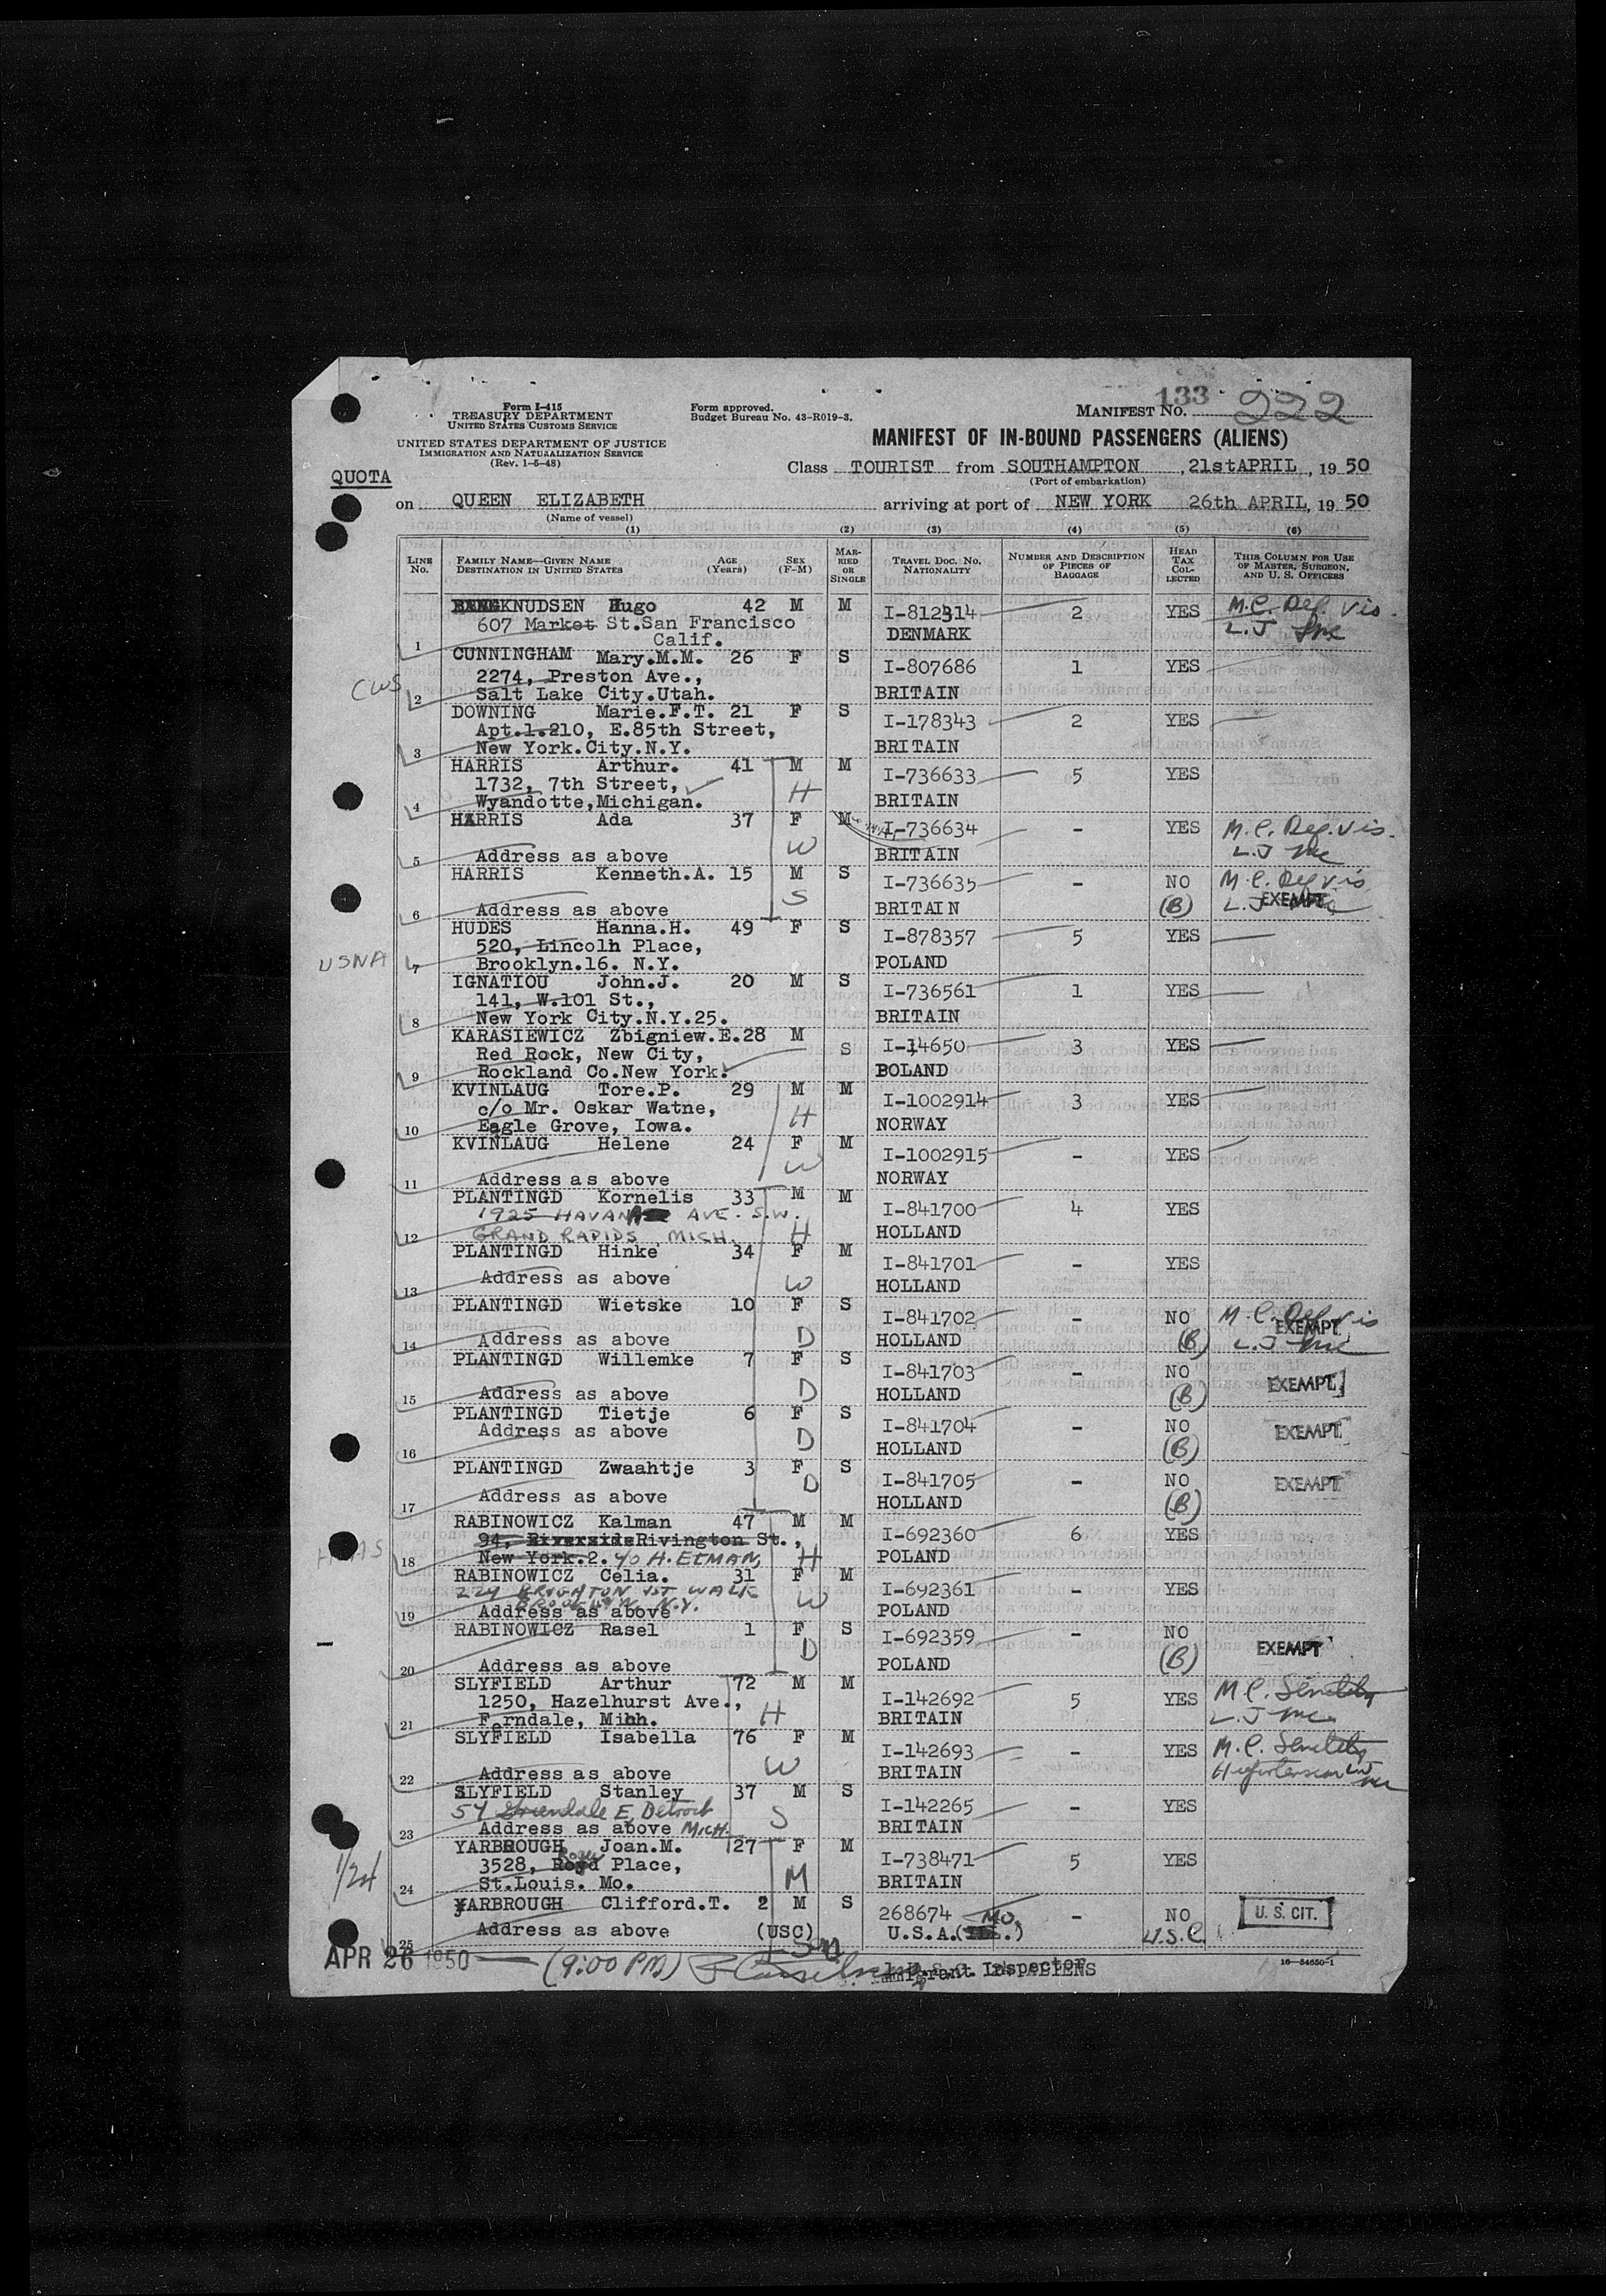 133 222
Form I-415
TREASURY DEPARTMENT
UNITED STATES CUSTOMS SERVICE
UNITED STATES DEPARTMENT OF JUSTICE
IMMIGRATION AND NATURALIZATION SERVICE
(Rev. 1-5-48)
Form approved.
Budget Bureau No. 43-R019-3.
MANIFEST NO.
MANIFEST OF IN-BOUND PASSENGERS (ALIENS)
Class TOURIST from SOUTHAMPTON , 21st APRIL , 19 50
(Port of embarkation)
QUOTA
on QUEEN ELIZABETH arriving at port of NEW YORK 26th APRIL, 19 50
(Name of vessel)
(1) (2) (3) (4) (5) (6)
LINE NO.
FAMILY NAME—GIVEN NAME
DESTINATION IN UNITED STATES
AGE (Years)
SEX (F-M)
MARRIED OR SINGLE
TRAVEL DOC. NO. NATIONALITY
NUMBER AND DESCRIPTION OF PIECES OF BAGGAGE
HEAD TAX COLLECTED
THIS COLUMN FOR USE OF MASTER, SURGEON, AND U. S. OFFICERS
KNUDSEN Hugo 42 M M I-812314 2 YES M.C. Def. vis.
607 Market St.San Francisco L.J
1 Calif. DENMARK
CUNNINGHAM Mary.M.M. 26 F S I-807686 1 YES
2274, Preston Ave.,
CWS 2 Salt Lake City.Utah. BRITAIN
DOWNING Marie.F.T. 21 F S I-178343 2 YES
Apt.1.210, E.85th Street,
3 New York.City.N.Y. BRITAIN
HARRIS Arthur. 41 M M I-736633 5 YES
1732, 7th Street, H
4 Wyandotte,Michigan. BRITAIN
HARRIS Ada 37 F M I-736634 - YES M.C. Def.vis.
5 Address as above W BRITAIN L.J
HARRIS Kenneth.A. 15 M S I-736635 - NO M.C. Def vis
6 Address as above S BRITAIN (B) L.J EXEMPT
HUDES Hanna.H. 49 F S I-878357 5 YES
520, Lincoln Place,
USNA 7 Brooklyn.16. N.Y. POLAND
IGNATIOU John.J. 20 M S I-736561 1 YES
141, W.101 St.,
8 New York City.N.Y.25. BRITAIN
KARASIEWICZ Zbigniew.E.28 M S I-14650 3 YES
Red Rock, New City,
9 Rockland Co.New York. POLAND
KVINLAUG Tore.P. 29 M M I-1002914 3 YES
c/o Mr. Oskar Watne, H
10 Eagle Grove, Iowa. NORWAY
KVINLAUG Helene 24 F M I-1002915 - YES
11 Address as above W NORWAY
PLANTINGD Kornelis 33 M M I-841700 4 YES
1925 HAVANA AVE. S.W.
12 GRAND RAPIDS, MICH. H HOLLAND
PLANTINGD Hinke 34 F M I-841701 - YES
13 Address as above W HOLLAND
PLANTINGD Wietske 10 F S I-841702 - NO M.C. Def vis
14 Address as above D HOLLAND (B) EXEMPT L.J
PLANTINGD Willemke 7 F S I-841703 - NO
15 Address as above D HOLLAND (B) EXEMPT
PLANTINGD Tietje 6 F S I-841704 - NO
16 Address as above D HOLLAND (B) EXEMPT
PLANTINGD Zwaahtje 3 F S I-841705 - NO
17 Address as above D HOLLAND (B) EXEMPT
RABINOWICZ Kalman 47 M M I-692360 6 YES
94, Riverside Rivington St.,
HIAS 18 New York.2. c/o H. ETMAN, H POLAND
RABINOWICZ Celia. 31 F M I-692361 - YES
224 BRIGHTON 1ST WALK W
BROOKLYN N.Y.
19 Address as above POLAND
RABINOWICZ Rasel 1 F S I-692359 - NO
20 Address as above D POLAND (B) EXEMPT
SLYFIELD Arthur 72 M M I-142692 5 YES M.C. Senility
1250, Hazelhurst Ave., H
21 Ferndale, Mich. BRITAIN L.J
SLYFIELD Isabella 76 F M I-142693 - YES M.C. Senility
22 Address as above W BRITAIN Hypertension
SLYFIELD Stanley 37 M S I-142265 - YES
54 E, Detroit S
23 Address as above MICH. BRITAIN
YARBROUGH Joan.M. 27 F M I-738471 5 YES
3528, Place,
24 St.Louis. Mo. M BRITAIN
YARBROUGH Clifford.T. 2 M S 268674 - NO U. S. CIT.
25 Address as above (USC) Son U.S.A.( Mo. ) U.S.C.
APR 26 1950 (9:00 PM) Immigrant Inspector ALIENS
16—54650-1